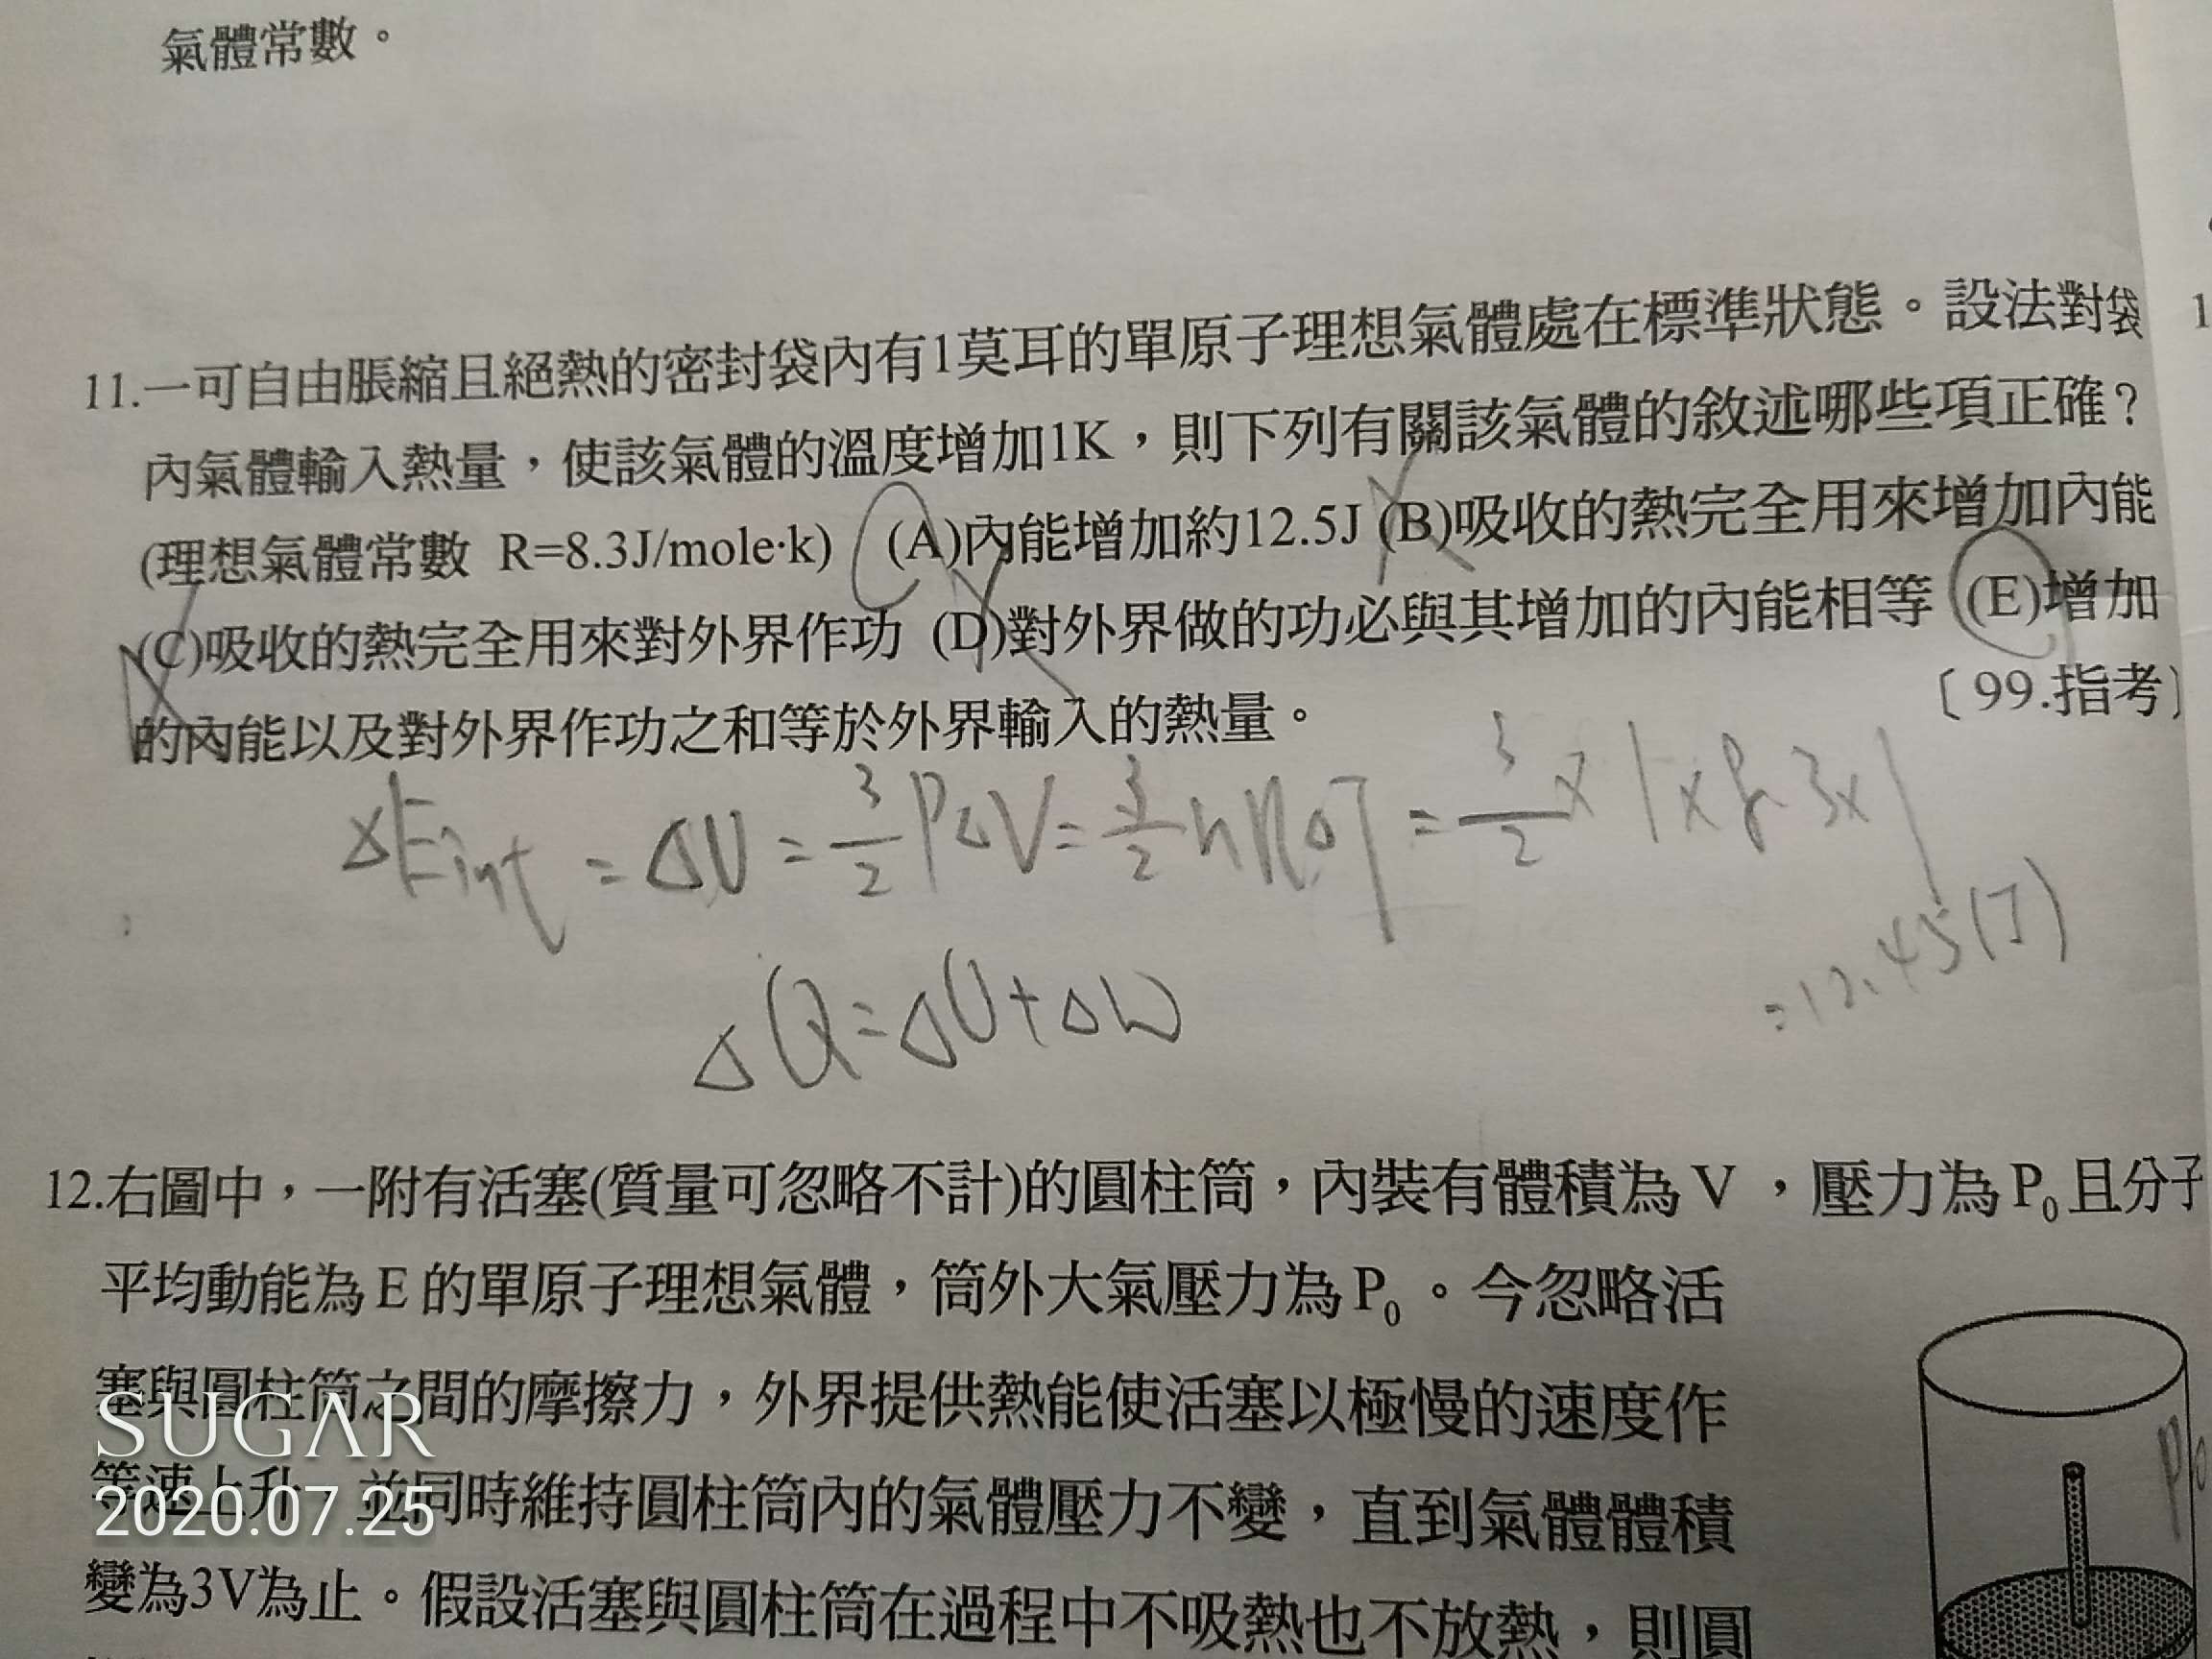 氣體常數。
11.一可自由脹縮且絕熱的密封袋內有1莫耳的單原子理想氣體處在標準狀態。設法對袋
內氣體輸入熱量，使該氣體的溫度增加1K，則下列有關該氣體的敘述哪些項正確？
(理想氣體常數 R=8.3J/mole·k) (A)內能增加約12.5J (B)吸收的熱完全用來增加內能
(C)吸收的熱完全用來對外界作功 (D)對外界做的功必與其增加的內能相等 (E)增加
的內能以及對外界作功之和等於外界輸入的熱量。
〔99.指考〕
ΔEint = ΔU = 3/2 PΔV = 3/2 nRΔT = 3/2 × 1 × 8.3 × 1
= 12.45 (J)
ΔQ = ΔU + ΔW
12.右圖中，一附有活塞(質量可忽略不計)的圓柱筒，內裝有體積為 V ，壓力為 P₀ 且分子
平均動能為 E 的單原子理想氣體，筒外大氣壓力為 P₀ 。今忽略活
塞與圓柱筒之間的摩擦力，外界提供熱能使活塞以極慢的速度作
等速上升 並同時維持圓柱筒內的氣體壓力不變，直到氣體體積
變為3V為止。假設活塞與圓柱筒在過程中不吸熱也不放熱，則圓
P₀
SUGAR
2020.07.25